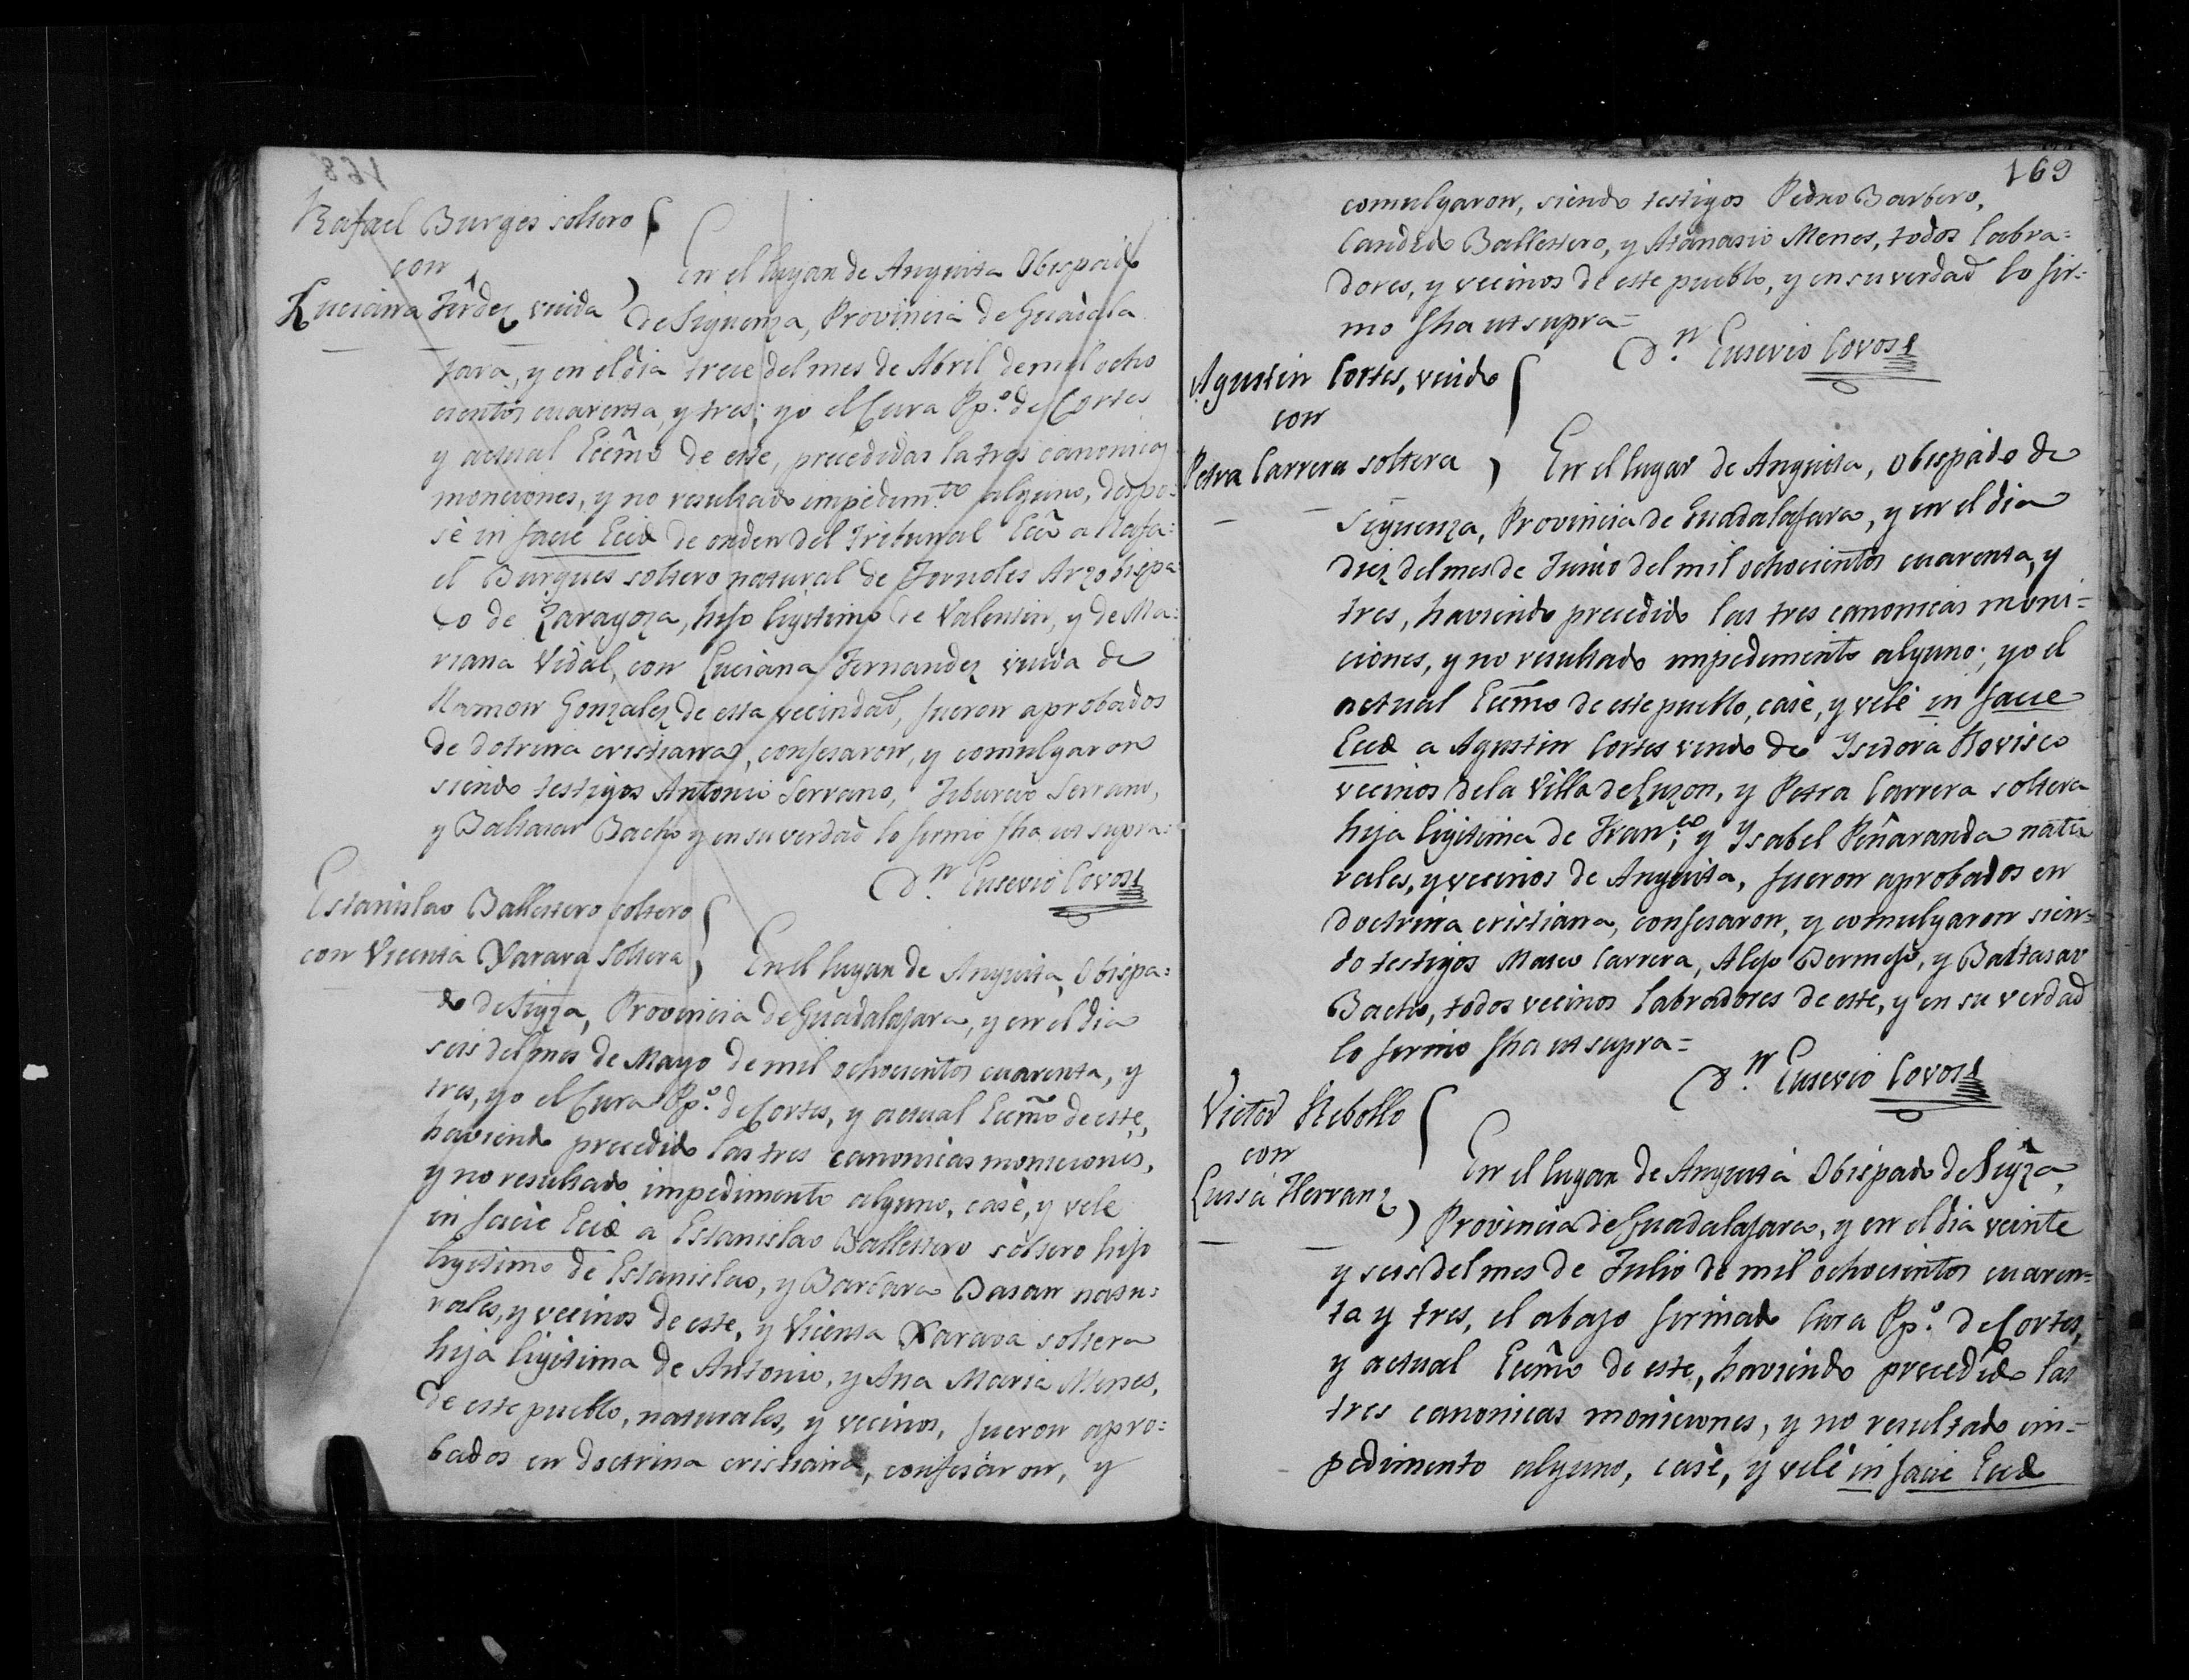 168
Rafael Burges soltero
con
Luciana Ferdez viuda
En el lugar de Anguita Obispado
de Siguenza, Provincia de Guadala
jara, y en el dia trece del mes de Abril de mil ocho
cientos cuarenta, y tres; yo el Cura Pp.º de Cortes
y actual Eccmo de este, precedidas la tres canonicas
moniciones, y no resultado impedim.to alguno, despo=
sè in facie Eccæ de orden del Tribunal Ecco a Rafa=
el Burgues soltero natural de Fornoles Arzobispa
do de Zaragoza, hijo ligitimo de Valentin, y de Ma=
riana Vidal, con Luciana Fernandez viuda de
Ramon Gonzalez de esta vecindad, fueron aprobados
de dotrina cristiana, confesaron, y comulgaron
siendo testigos Antonio Serrano, Tiburcio Serrano,
y Baltasar Bacho y en su verdad lo firmo fha ut supra=
D.n Eusevio Covos
Estanislao Ballestero soltero
con Vicenta Xarava soltera
En el lugar de Anguita, Obispa=
do de Sigza, Provincia de Guadalajara, y en el dia
seis del mes de Mayo de mil ochocientos cuarenta, y
tres, yo el Cura Pp.º de Cortes, y actual Eccmo de este,
haviendo precedido las tres canonicas moniciones,
y no resultado impedimento alguno, casè, y velè
in facie Eccæ a Estanislao Ballestero soltero hijo
ligitimo de Estanislao, y Barbara Basan natu=
rales, y vecinos de este, y Vicenta Xarava soltera
hija ligitima de Antonio, y Ana Maria Menes,
de este pueblo, naturales, y vecinos, fueron apro=
bados en doctrina cristiana, confesaron, y
169
comulgaron, siendo testigos Pedro Barbero,
Candido Ballestero, y Atanasio Menes, todos labra=
dores, y vecinos de este pueblo, y en su verdad lo fir=
mo fha ut supra=
D.n Eusevio Covos
Agustin Cortes, viudo
con
Petra Carrera soltera
En el lugar de Anguita, Obispado de
Siguenza, Provincia de Guadalajara, y en el dia
diez del mes de Junio del mil ochocientos cuarenta, y
tres, haviendo precedido las tres canonicas moni=
ciones, y no resultado impedimento alguno; yo el
actual Eccmo de este pueblo, casè, y velè in facie
Eccæ a Agustin Cortes viudo de Ysidora Rovisco
vecinos de la Villa de Luzon, y Petra Carrera soltera
hija ligitima de Fran.co y Ysabel Peñaranda natu
rales, y vecinos de Anguita, fueron aprobados en
doctrina cristiana, confesaron, y comulgaron sien=
do testigos Mateo Carrera, Alejo Bermejo, y Baltasar
Bacho, todos vecinos labradores de este, y en su verdad
lo firmo fha ut supra=
D.n Eusevio Covos
Victor Rebollo
con
Luisa Herranz
En el lugar de Anguita Obispado de Sigza,
Provincia de Guadalajara, y en el dia veinte
y seis del mes de Julio de mil ochocientos cuaren=
ta y tres, el abajo firmado Cura Pp.º de Cortes,
y actual Eccmo de este, haviendo precedido las
tres canonicas moniciones, y no resultado im=
pedimento alguno, casè, y velè in facie Eccæ